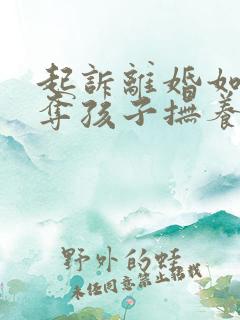 起訴離婚如
奪孩子撫養
野外的蛙
未经同意禁止搭载